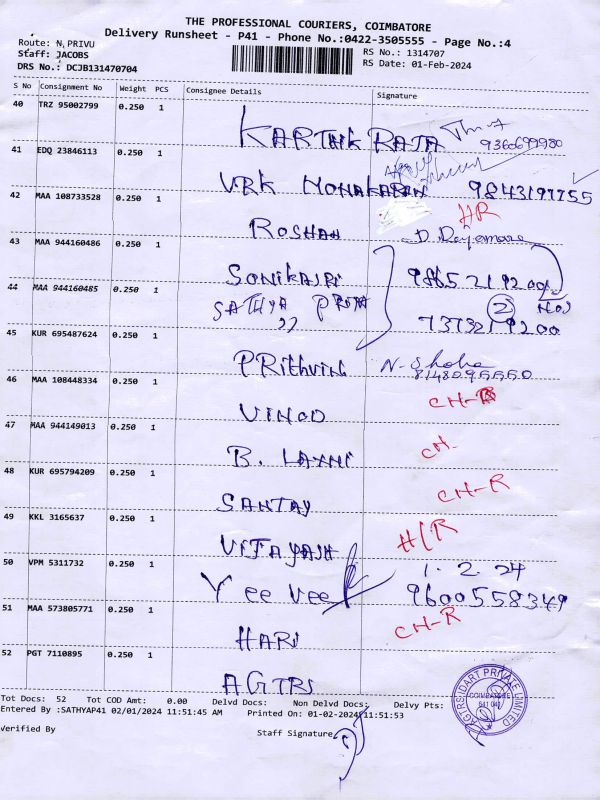 THE PROFESSIONAL COURIERS, COIMBATORE
Delivery Runsheet - P41 - Phone No.:0422-3505555 - Page No.:4
Route: N,PRIVU
Staff: JACOBS
DRS No.: DCJB131470704
RS No.: 1314707
RS Date: 01-Feb-2024
S No Consignment No Weight PCS Consignee Details Signature
40 TRZ 95002799 0.250 1
KARTHIK RAJA 9360699980
41 EDQ 23846113 0.250 1
VRK MONAKARAN 9843197755
42 MAA 108733528 0.250 1
ROSHAN HR
43 MAA 944160486 0.250 1
SONIKASRI 9865219200
44 MAA 944160485 0.250 1
SATHYA PRIYA 2 Nos
7373219200
45 KUR 695487624 0.250 1
PRITHVINI N. Shoba
8148095550
46 MAA 108448334 0.250 1
VINOD CH-R
47 MAA 944149013 0.250 1
B. LAXMI CH
48 KUR 695794209 0.250 1
SANJAY CH-R
49 KKL 3165637 0.250 1
VIJAYASH H/R
50 VPM 5311732 0.250 1
1.2.24
Yee Vee 9600558349
51 MAA 573805771 0.250 1
HARI CH-R
52 PGT 7110895 0.250 1
AGTRS
Tot Docs: 52 Tot COD Amt: 0.00 Delvd Docs: Non Delvd Docs: Delvy Pts:
Entered By :SATHYAP41 02/01/2024 11:51:45 AM Printed On: 01-02-2024 11:51:53
Verified By Staff Signature
PRIVATE LIMITED
COIMBATORE